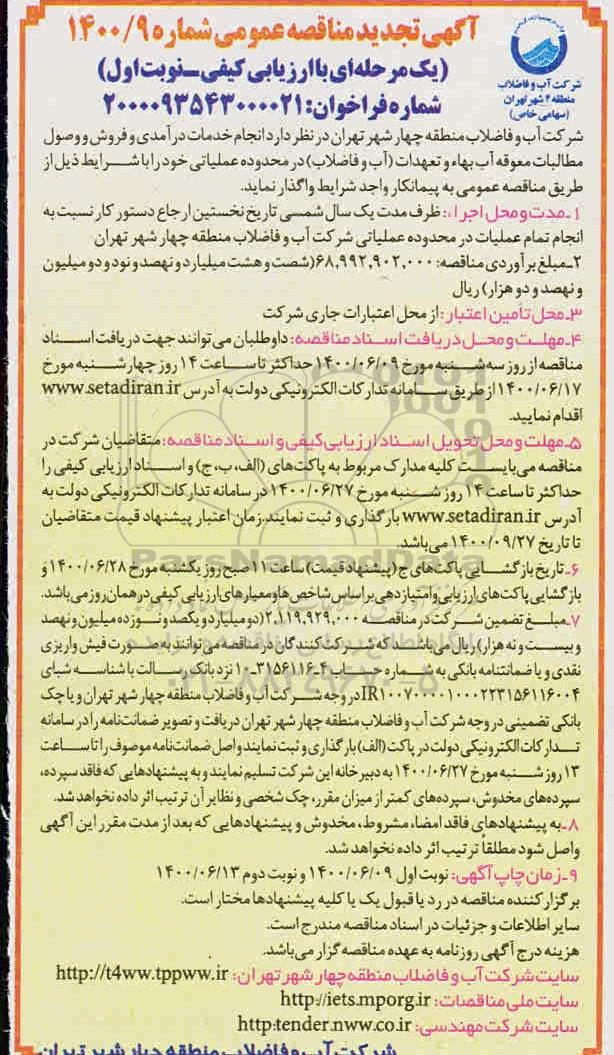 آگهی تجدید مناقصه عمومی شماره ۱۴۰۰/۹
(یک مرحله‌ای با ارزیابی کیفی ـ نوبت اول)
شماره فراخوان: ۲۰۰۰۰۹۳۵۴۳۰۰۰۰۲۱
شرکت آب و فاضلاب
منطقه ۴ شهر تهران
(سهامی خاص)
شرکت آب و فاضلاب منطقه چهار شهر تهران در نظر دارد انجام خدمات درآمدی و فروش و وصول
مطالبات معوقه آب بهاء و تعهدات (آب و فاضلاب) در محدوده عملیاتی خود را با شرایط ذیل از
طریق مناقصه عمومی به پیمانکار واجد شرایط واگذار نماید.
۱ـ مدت و محل اجراء: ظرف مدت یک سال شمسی تاریخ نخستین ارجاع دستور کار نسبت به
انجام تمام عملیات در محدوده عملیاتی شرکت آب و فاضلاب منطقه چهار شهر تهران
۲ـ مبلغ برآوردی مناقصه: ۶۸,۹۹۲,۹۰۲,۰۰۰ (شصت و هشت میلیارد و نهصد و نود و دو میلیون
و نهصد و دو هزار) ریال
۳ـ محل تأمین اعتبار: از محل اعتبارات جاری شرکت
۴ـ مهلت و محل دریافت اسناد مناقصه: داوطلبان می‌توانند جهت دریافت اسناد
مناقصه از روز سه‌شنبه مورخ ۱۴۰۰/۰۶/۰۹ حداکثر تا ساعت ۱۴ روز چهارشنبه مورخ
۱۴۰۰/۰۶/۱۷ از طریق سامانه تدارکات الکترونیکی دولت به آدرس www.setadiran.ir
اقدام نمایید.
۵ـ مهلت و محل تحویل اسناد ارزیابی کیفی و اسناد مناقصه: متقاضیان شرکت در
مناقصه می‌بایست کلیه مدارک مربوط به پاکت‌های (الف، ب، ج) و اسناد ارزیابی کیفی را
حداکثر تا ساعت ۱۴ روز شنبه مورخ ۱۴۰۰/۰۶/۲۷ در سامانه تدارکات الکترونیکی دولت به
آدرس www.setadiran.ir بارگذاری و ثبت نمایند. زمان اعتبار پیشنهاد قیمت متقاضیان
تا تاریخ ۱۴۰۰/۰۹/۲۷ می‌باشد.
ParsNamadData
۶ـ تاریخ بازگشایی پاکت‌های ج (پیشنهاد قیمت) ساعت ۱۱ صبح روز یکشنبه مورخ ۱۴۰۰/۰۶/۲۸ و
بازگشایی پاکت‌های ارزیابی و امتیازدهی بر اساس شاخص‌ها و معیارهای ارزیابی کیفی در همان روز می‌باشد.
۷ـ مبلغ تضمین شرکت در مناقصه ۲,۱۱۹,۹۲۹,۰۰۰ (دو میلیارد و یکصد و نوزده میلیون و نهصد
و بیست و نه هزار) ریال می‌باشد که شرکت‌کنندگان در مناقصه می‌توانند به صورت فیش واریزی
نقدی و یا ضمانتنامه بانکی به شماره حساب ۴-۳۱۵۶۱۱۶-۱۰ نزد بانک رسالت با شناسه شبای
IR۱۰۰۷۰۰۰۰۱۰۰۰۲۲۳۱۵۶۱۱۶۰۰۴ در وجه شرکت آب و فاضلاب منطقه چهار شهر تهران و یا چک
بانکی تضمینی در وجه شرکت آب و فاضلاب منطقه چهار شهر تهران دریافت و تصویر ضمانت‌نامه را در سامانه
تدارکات الکترونیکی دولت در پاکت (الف) بارگذاری و ثبت نمایند و اصل ضمانت‌نامه موصوف را تا ساعت
۱۳ روز شنبه مورخ ۱۴۰۰/۰۶/۲۷ به دبیرخانه این شرکت تسلیم نمایند و به پیشنهادهایی که فاقد سپرده،
سپرده‌های مخدوش، سپرده‌های کمتر از میزان مقرر، چک شخصی و نظایر آن ترتیب اثر داده نخواهد شد.
۸ـ به پیشنهادهای فاقد امضا، مشروط، مخدوش و پیشنهادهایی که بعد از مدت مقرر این آگهی
واصل شود مطلقاً ترتیب اثر داده نخواهد شد.
۹ـ زمان چاپ آگهی: نوبت اول ۱۴۰۰/۰۶/۰۹ و نوبت دوم ۱۴۰۰/۰۶/۱۳
برگزارکننده مناقصه در رد یا قبول یک یا کلیه پیشنهادها مختار است.
سایر اطلاعات و جزئیات در اسناد مناقصه مندرج است.
هزینه درج آگهی روزنامه به عهده مناقصه گزار می‌باشد.
سایت شرکت آب و فاضلاب منطقه چهار شهر تهران: http://t4ww.tppww.ir
سایت ملی مناقصات: http://iets.mporg.ir
سایت شرکت مهندسی: http:tender.nww.co.ir
شرکت آب و فاضلاب منطقه چهار شهر تهران